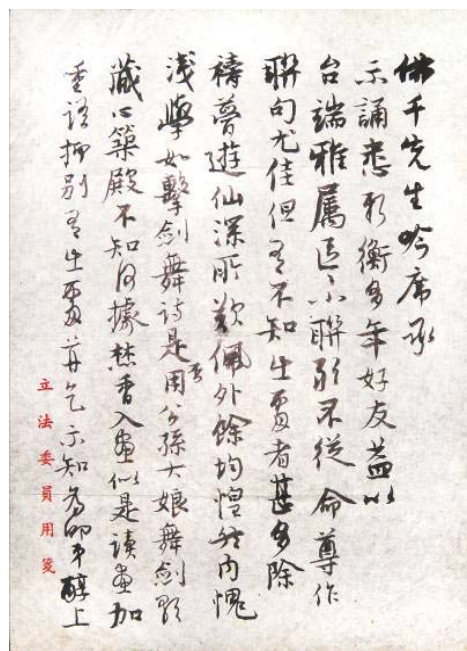 佛千先生吟席承
示誦悉彭衡多年好友益以
台端雅屬區區小聯敢不從命尊作
聯句尤佳但有不知出處者甚多除
禱夢遊仙深所歎佩外餘均惶然內愧
淺學如擊劍舞詩是否用公孫大娘舞劍
藏心築殿不知何據焚香入畫似是讀畫加
重語抑別有出處并乞示知為叩弟醇上
立法委員用箋